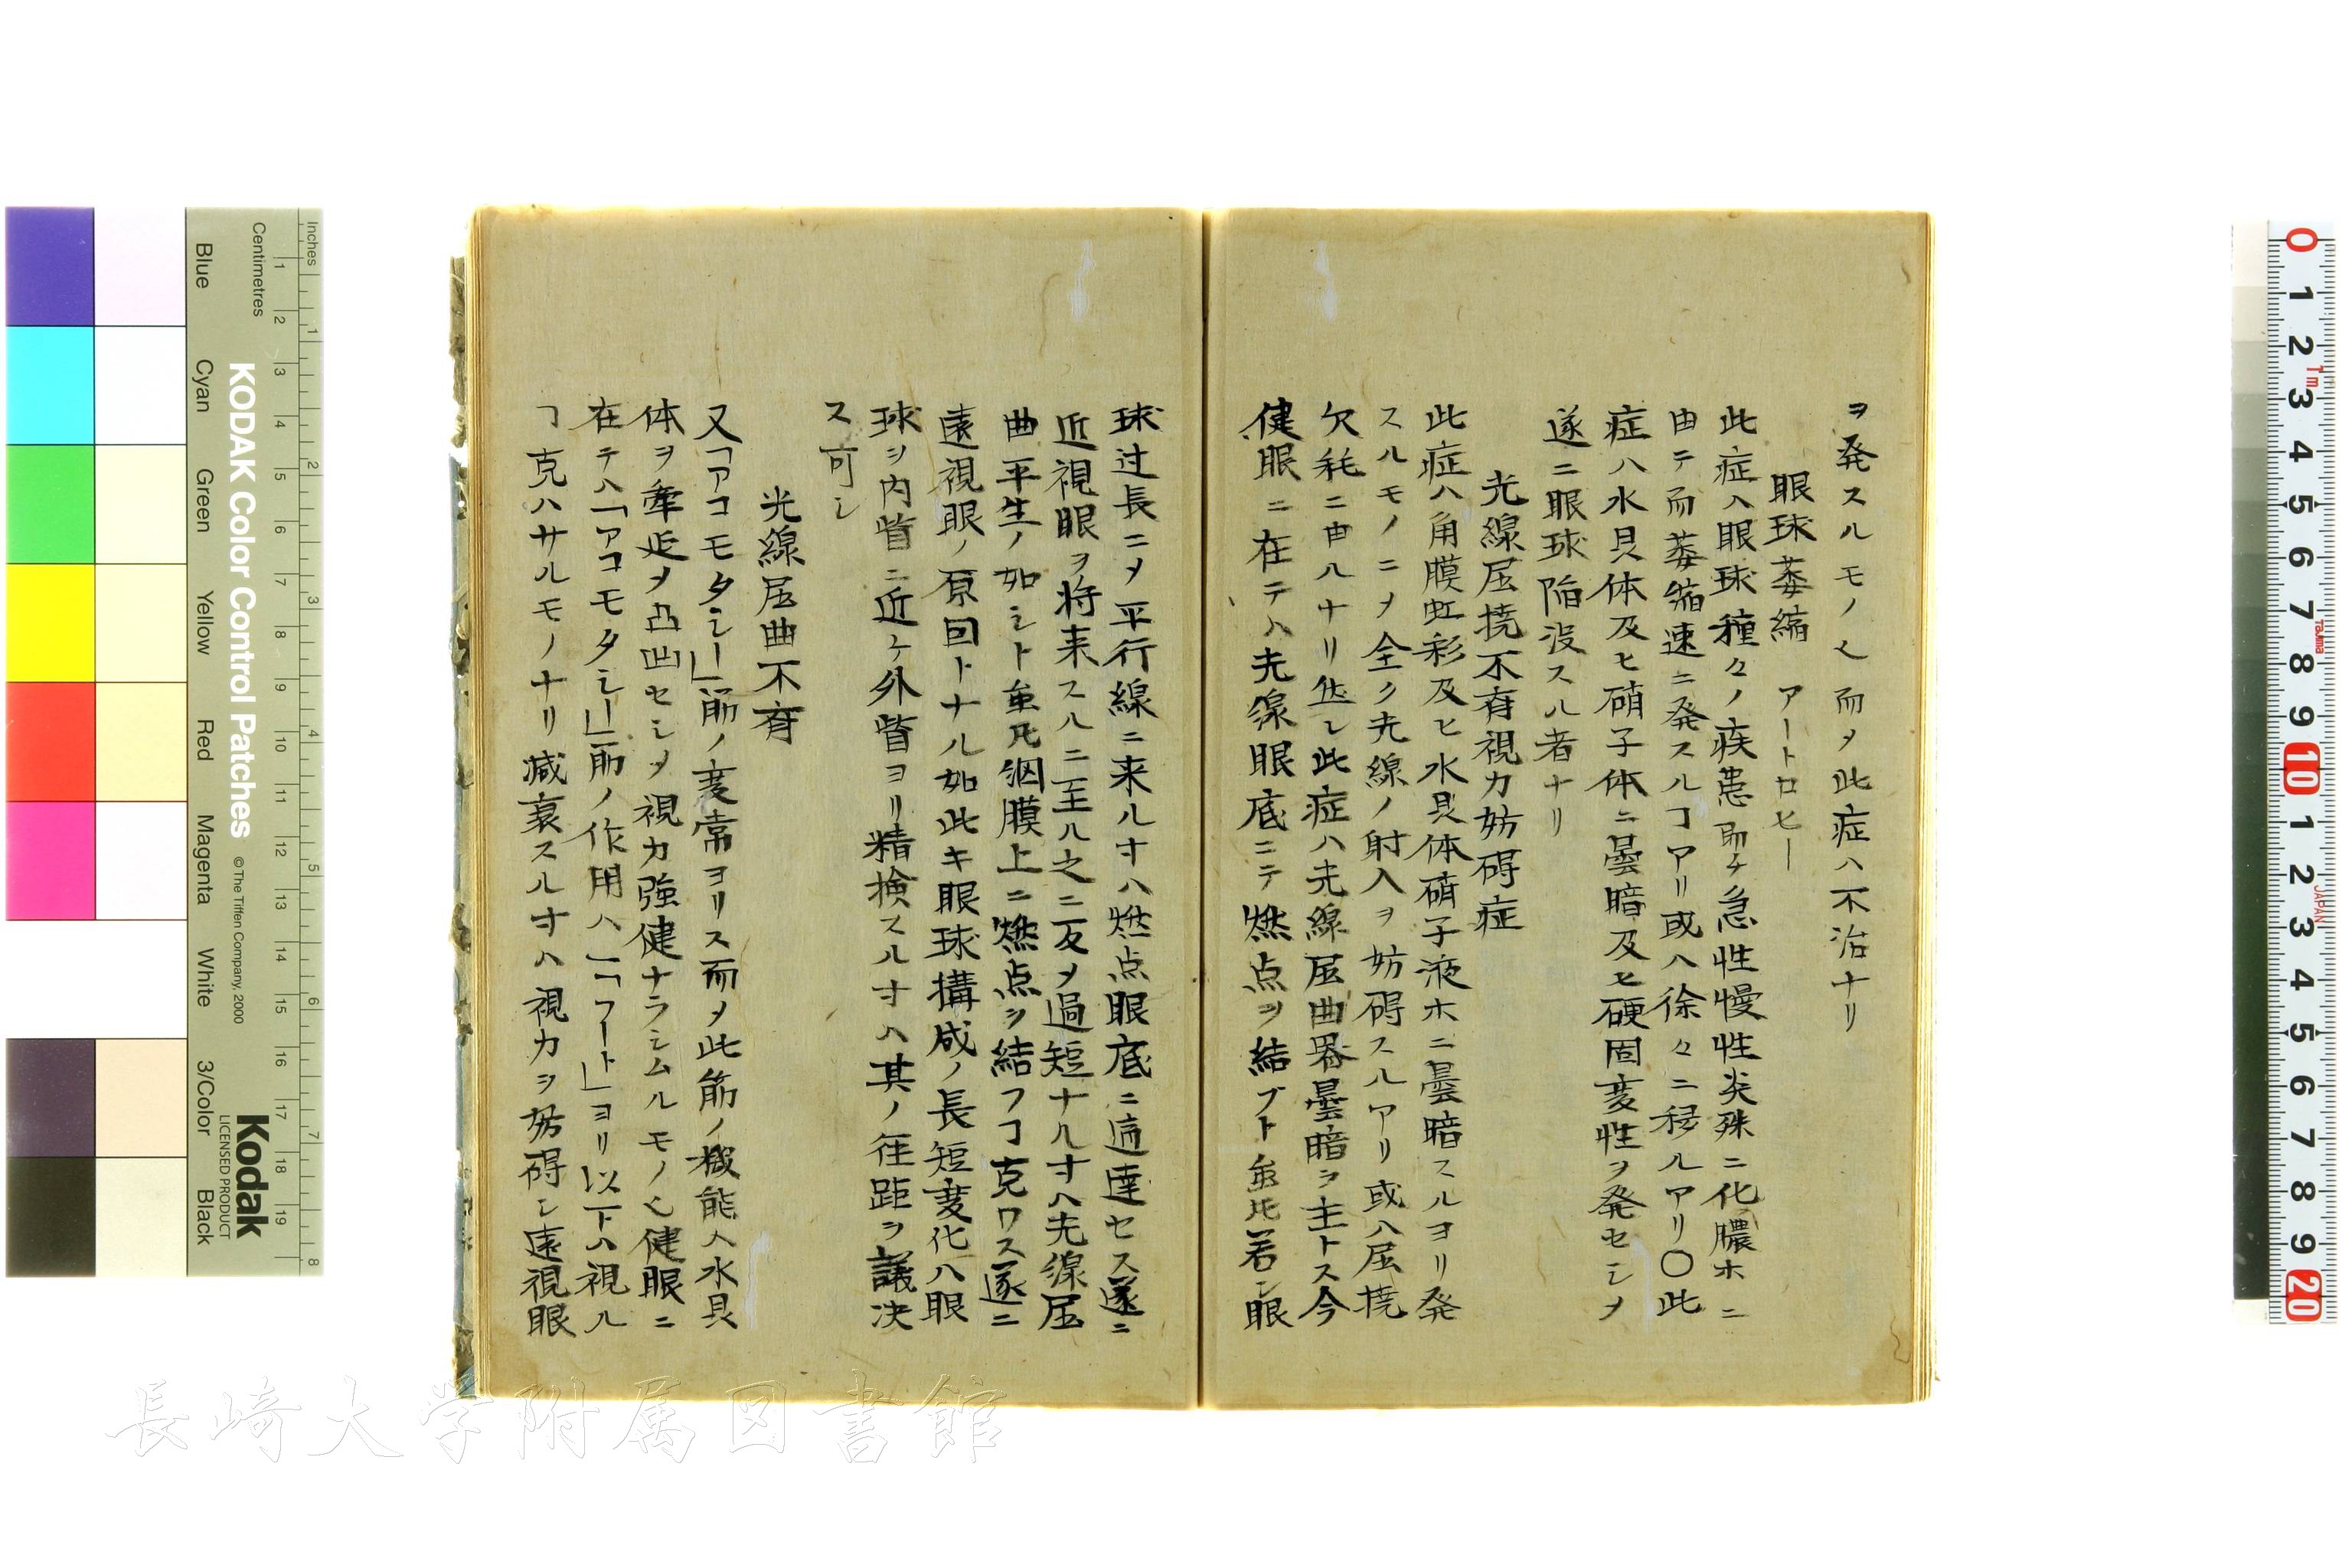 ヲ発スルモノ〆而ノ此症ハ不治ナリ
眼球萎縮 アートロヒー
此症ハ眼球種々ノ疾患即チ急性慢性炎殊ニ化膿ホニ
由テ而萎縮速ニ発スルヿアリ或ハ徐々ニ移ルアリ〇此
症ハ水晶体及ヒ硝子体ニ曇暗及ヒ硬固変性ヲ発セシメ
遂ニ眼球陥没スル者ナリ
光線屈撓不斉視力妨碍症
此症ハ角膜虹彩及ヒ水晶体硝子液ホニ曇暗スルヨリ発
スルモノニメ全ク光線ノ射入ヲ妨碍スルアリ或ハ屈撓
欠耗ニ由ルナリ但シ此症ハ光線屈曲器曇暗ヲ主トス今
健眼ニ在テハ光線眼底ニテ燃点ヲ結ブト虽圧若シ眼
球过長ニメ平行線ニ来ルオハ燃点眼底ニ適達セス遂ニ
近視眼ヲ将来スルニ至ル之ニ反メ過短ナルオハ光線屈
曲平生ノ如シト虽圧網膜上ニ燃点ヲ結フヿ克ワス遂ニ
遠視眼ノ原因トナル如此キ眼球構成ノ長短変化ハ眼
球ヲ内眥ニ近ケ外眥ヨリ精検スルオハ其ノ径距ヲ議決
ス可シ
光線屈曲不斉
又「アコモタシー」筋ノ変常ヨリス而メ此筋ノ機能ハ水晶
体ヲ牽延メ凸凹セシメ視力強健ナラシムルモノ〆健眼ニ
在テハ「アコモタシー」筋ノ作用ハ一「フート」ヨリ以下ハ視ル
ヿ克ハサルモノナリ减衰スルオハ視力ヲ妨碍シ遠視眼
Inches
Centimetres
KODAK Color Control Patches
© The Tiffen Company, 2000
Kodak
LICENSED PRODUCT
Blue
Cyan
Green
Yellow
Red
Magenta
White
3/Color
Black
長崎大学附属図書館